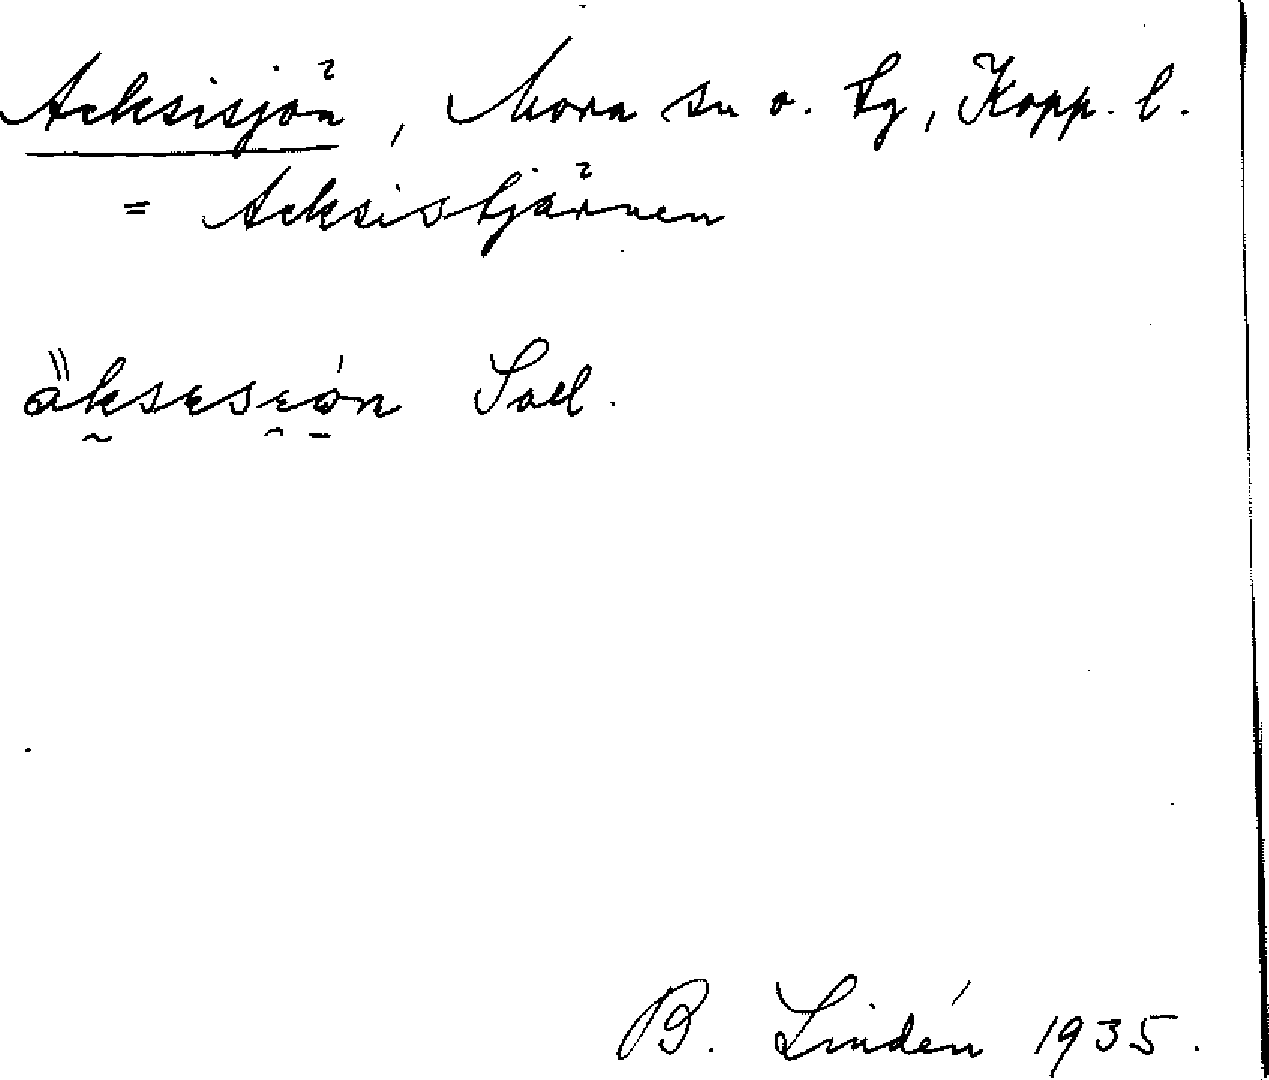 Acksisjön, Mora sn o. tg, Kopp. l.
= Acksistjärnen
Soll.
B. Lindén 1935.